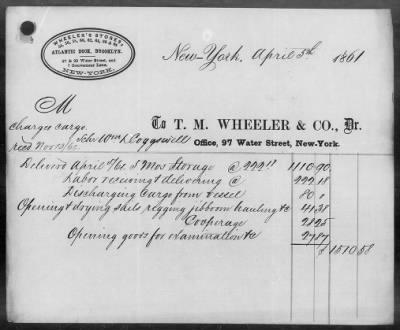 WHEELER'S STORES,
ATLANTIC DOCK, BROOKLYN.
NEW-YORK.
New-York, April 5th 1861
M
To T. M. WHEELER & CO., Dr.
Charges Cargo
Schr Wm L Coggswell
recd Nov 13/60
Office, 97 Water Street, New-York.
Delivered April 4/61 5 Mos Storage @ 222 11 1110.90
Labor receiving & delivering @ 222.18
Discharging Cargo from vessel 80
Opening & drying sails rigging jibboom hauling &c 41.38
Cooperage 28.25
Opening goods for examination &c 27.87
$ 1510.58